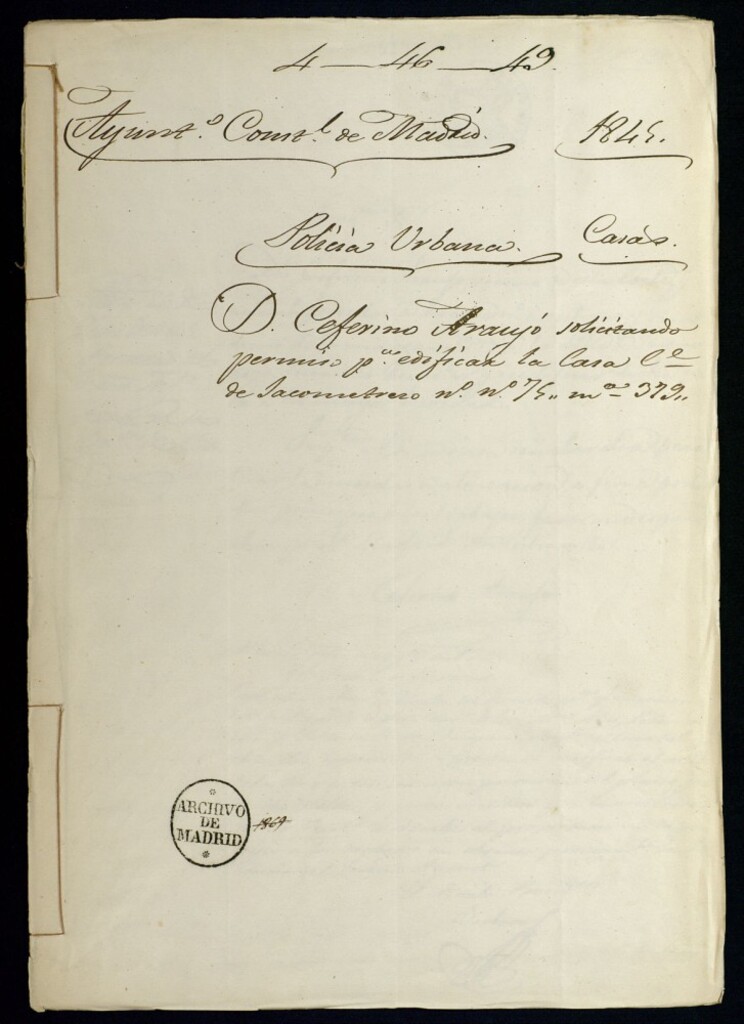 4—46—49.
Ayunt.º Const.l de Madrid. 1845.
Policia Urbana. Casas.
D. Ceferino Araujo solicitando
permiso p.ª edificar la Casa C.e
de Jacometrezo nº. n.º 75,, m.na 379,,
ARCHIVO
DE
MADRID
1869